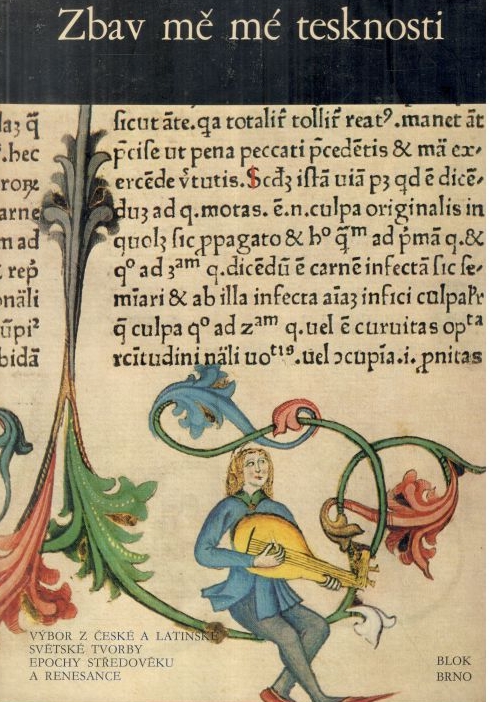 Zbav mě mé tesknosti
.hec
arne
m ad
onāli
bidā
sicut āte. qa totalir̄ tollir̄ reat⁹. manet āt
p̄cise ut pena peccati p̄cedētis & mā ex-
ercēde v̄tutis. Scdꝫ istā uiā pꝫ qd ē dicē-
duꝫ ad q. motas. ē. n. culpa originalis in
quolꝫ sic ꝓpagato & hº q̄ᵐ ad p̄mā q. &
qº ad ʒᵃᵐ q. dicēdū ē carnē infectā sic se-
miari & ab illa infecta aīaꝫ infici culpa
q̄ culpa qº ad zᵃᵐ q. uel ē curuitas opᵗᵃ
rcītudini nāli uoᵗⁱˢ. uel ɔcupīa .i. ꝓnitas
VÝBOR Z ČESKÉ A LATINSKÉ
SVĚTSKÉ TVORBY
EPOCHY STŘEDOVĚKU
A RENESANCE
BLOK
BRNO